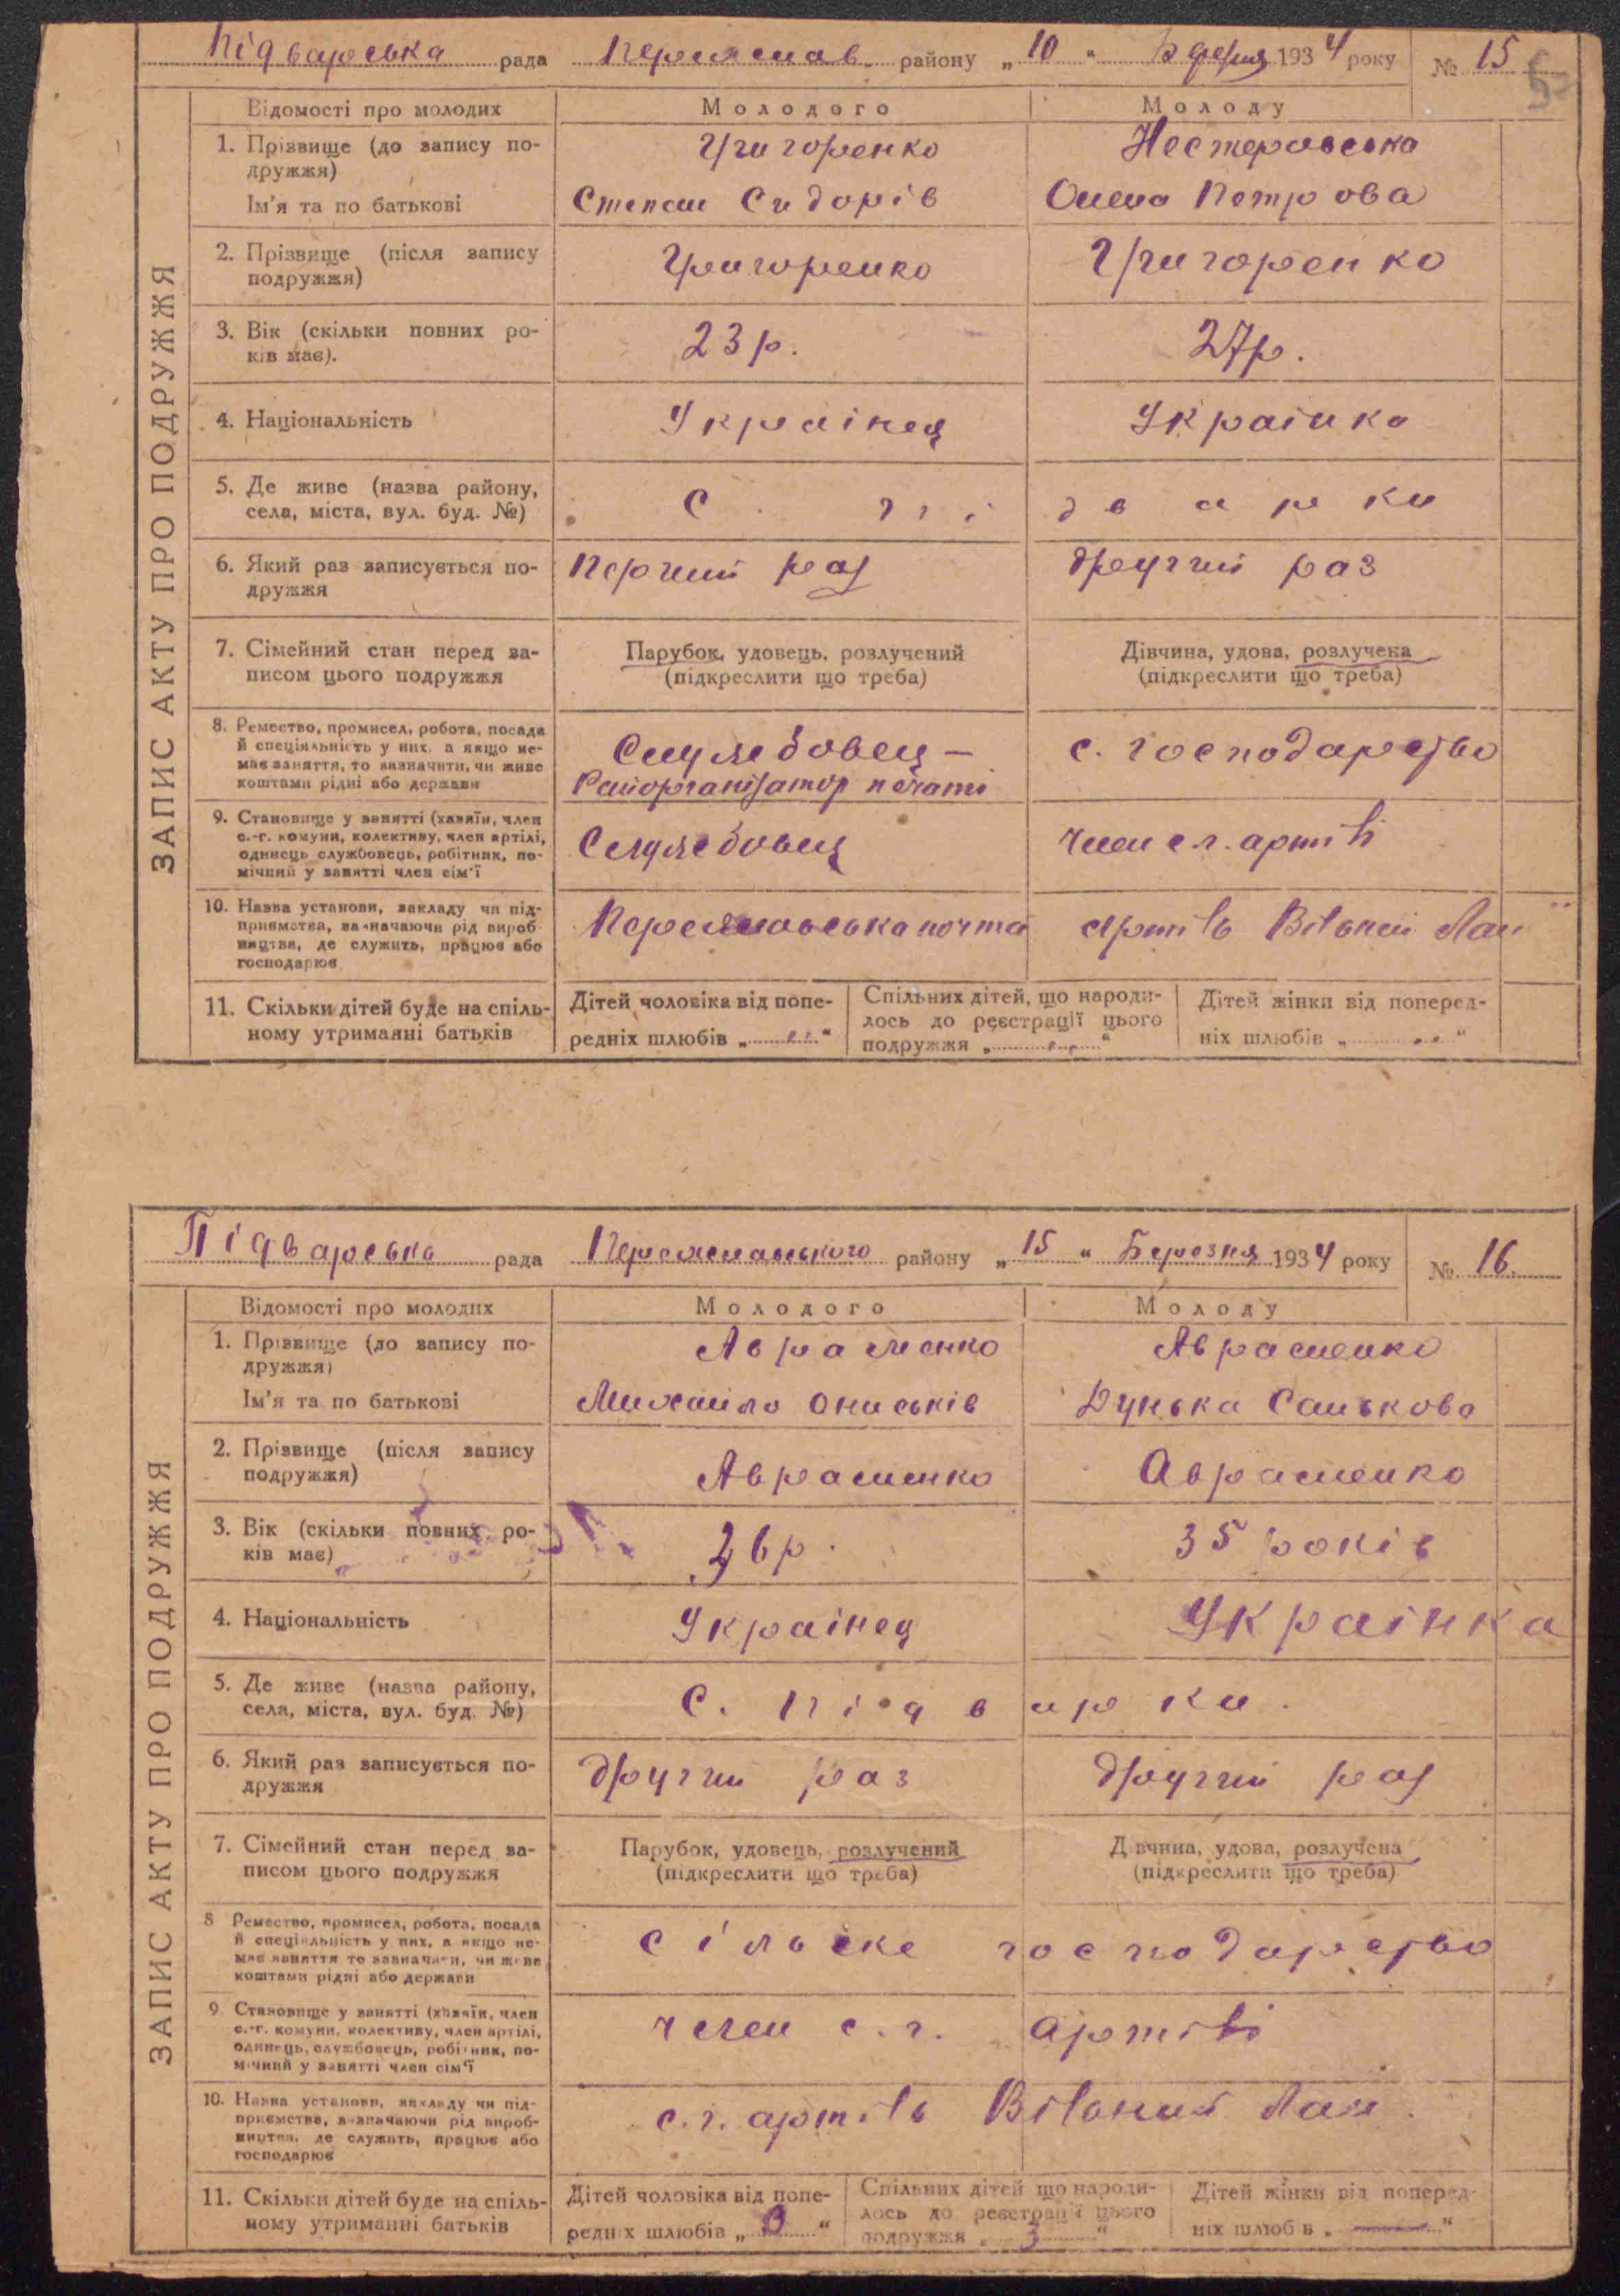 Підварська рада Переяслав. району „10" Березня 1934 року № 15
Відомості про молодих Молодого Молоду
1. Прізвище (до запису по-
дружжя) Григоренко Нестеровська
Ім'я та по батькові Степан Сидорів Олена Петрова
2. Прізвище (після запису
подружжя) Григоренко Григоренко
3. Вік (скільки повних ро-
ків має). 23 р. 27 р.
4. Національність Українец Українка
5. Де живе (назва району,
села, міста, вул. буд. №) С. Підварки
6. Який раз записується по-
дружжя Перший раз другий раз
7. Сімейний стан перед за-
писом цього подружжя
Парубок, удовець, розлучений
(підкреслити що треба)
Дівчина, удова, розлучена
(підкреслити що треба)
8. Ремество, промисел, робота, посада
й спеціяльність у них, а якщо не-
має заняття, то зазначити, чи живе
коштами рідні або держави
Службовец –
Райорганізатор печаті
с. господарство
9. Становище у занятті (хазяїн, член
с.-г. комуни, колективу, член артілі,
одинець службовець, робітник, по-
мічний у занятті член сім'ї
Служебовец член с.г. артілі
10. Назва установи, закладу чи під-
приємства, зазначаючи рід вироб-
ництва, де служить, працює або
господарює
Переяславська почта артіль Вільний Лан
11. Скільки дітей буде на спіль-
ному утриманні батьків
Дітей чоловіка від попе-
редніх шлюбів „ "
Спільних дітей, що народи-
лось до реєстрації цього
подружжя „ "
Дітей жінки від поперед-
ніх шлюбів „ "
ЗАПИС АКТУ ПРО ПОДРУЖЖЯ
Підварська рада Переяславського району „15" Березня 1934 року № 16.
Відомості про молодих Молодого Молоду
1. Прізвище (до запису по-
дружжя) Авраменко Авраменко
Ім'я та по батькові Михайло Ониськів Дунька Санькова
2. Прізвище (після запису
подружжя) Авраменко Авраменко
3. Вік (скільки повних ро-
ків має) 36 р. 35 років
4. Національність Українец Українка
5. Де живе (назва району,
села, міста, вул. буд. №) С. Підварки.
6. Який раз записується по-
дружжя другий раз другий раз
7. Сімейний стан перед за-
писом цього подружжя
Парубок, удовець, розлучений
(підкреслити що треба)
Дівчина, удова, розлучена
(підкреслити що треба)
8 Ремество, промисел, робота, посада
й спеціяльність у них, а якщо не-
має заняття то зазначити, чи живе
коштами рідні або держави
сільське господарство
9. Становище у занятті (хазяїн, член
с.-г. комуни, колективу, член артілі,
одинець, службовець, робітник, по-
мічний у занятті член сім'ї
член с. г. артілі
10. Назва установи, закладу чи під-
приємства, зазначаючи рід вироб-
ництва, де служить, працює або
господарює
с. г. артіль Вільний Лан.
11. Скільки дітей буде на спіль-
ному утриманні батьків
Дітей чоловіка від попе-
редніх шлюбів „ "
Спільних дітей що народи-
лось до реєстрації цього
подружжя „ 3 "
Дітей жінки від поперед-
ніх шлюбів „ — "
ЗАПИС АКТУ ПРО ПОДРУЖЖЯ